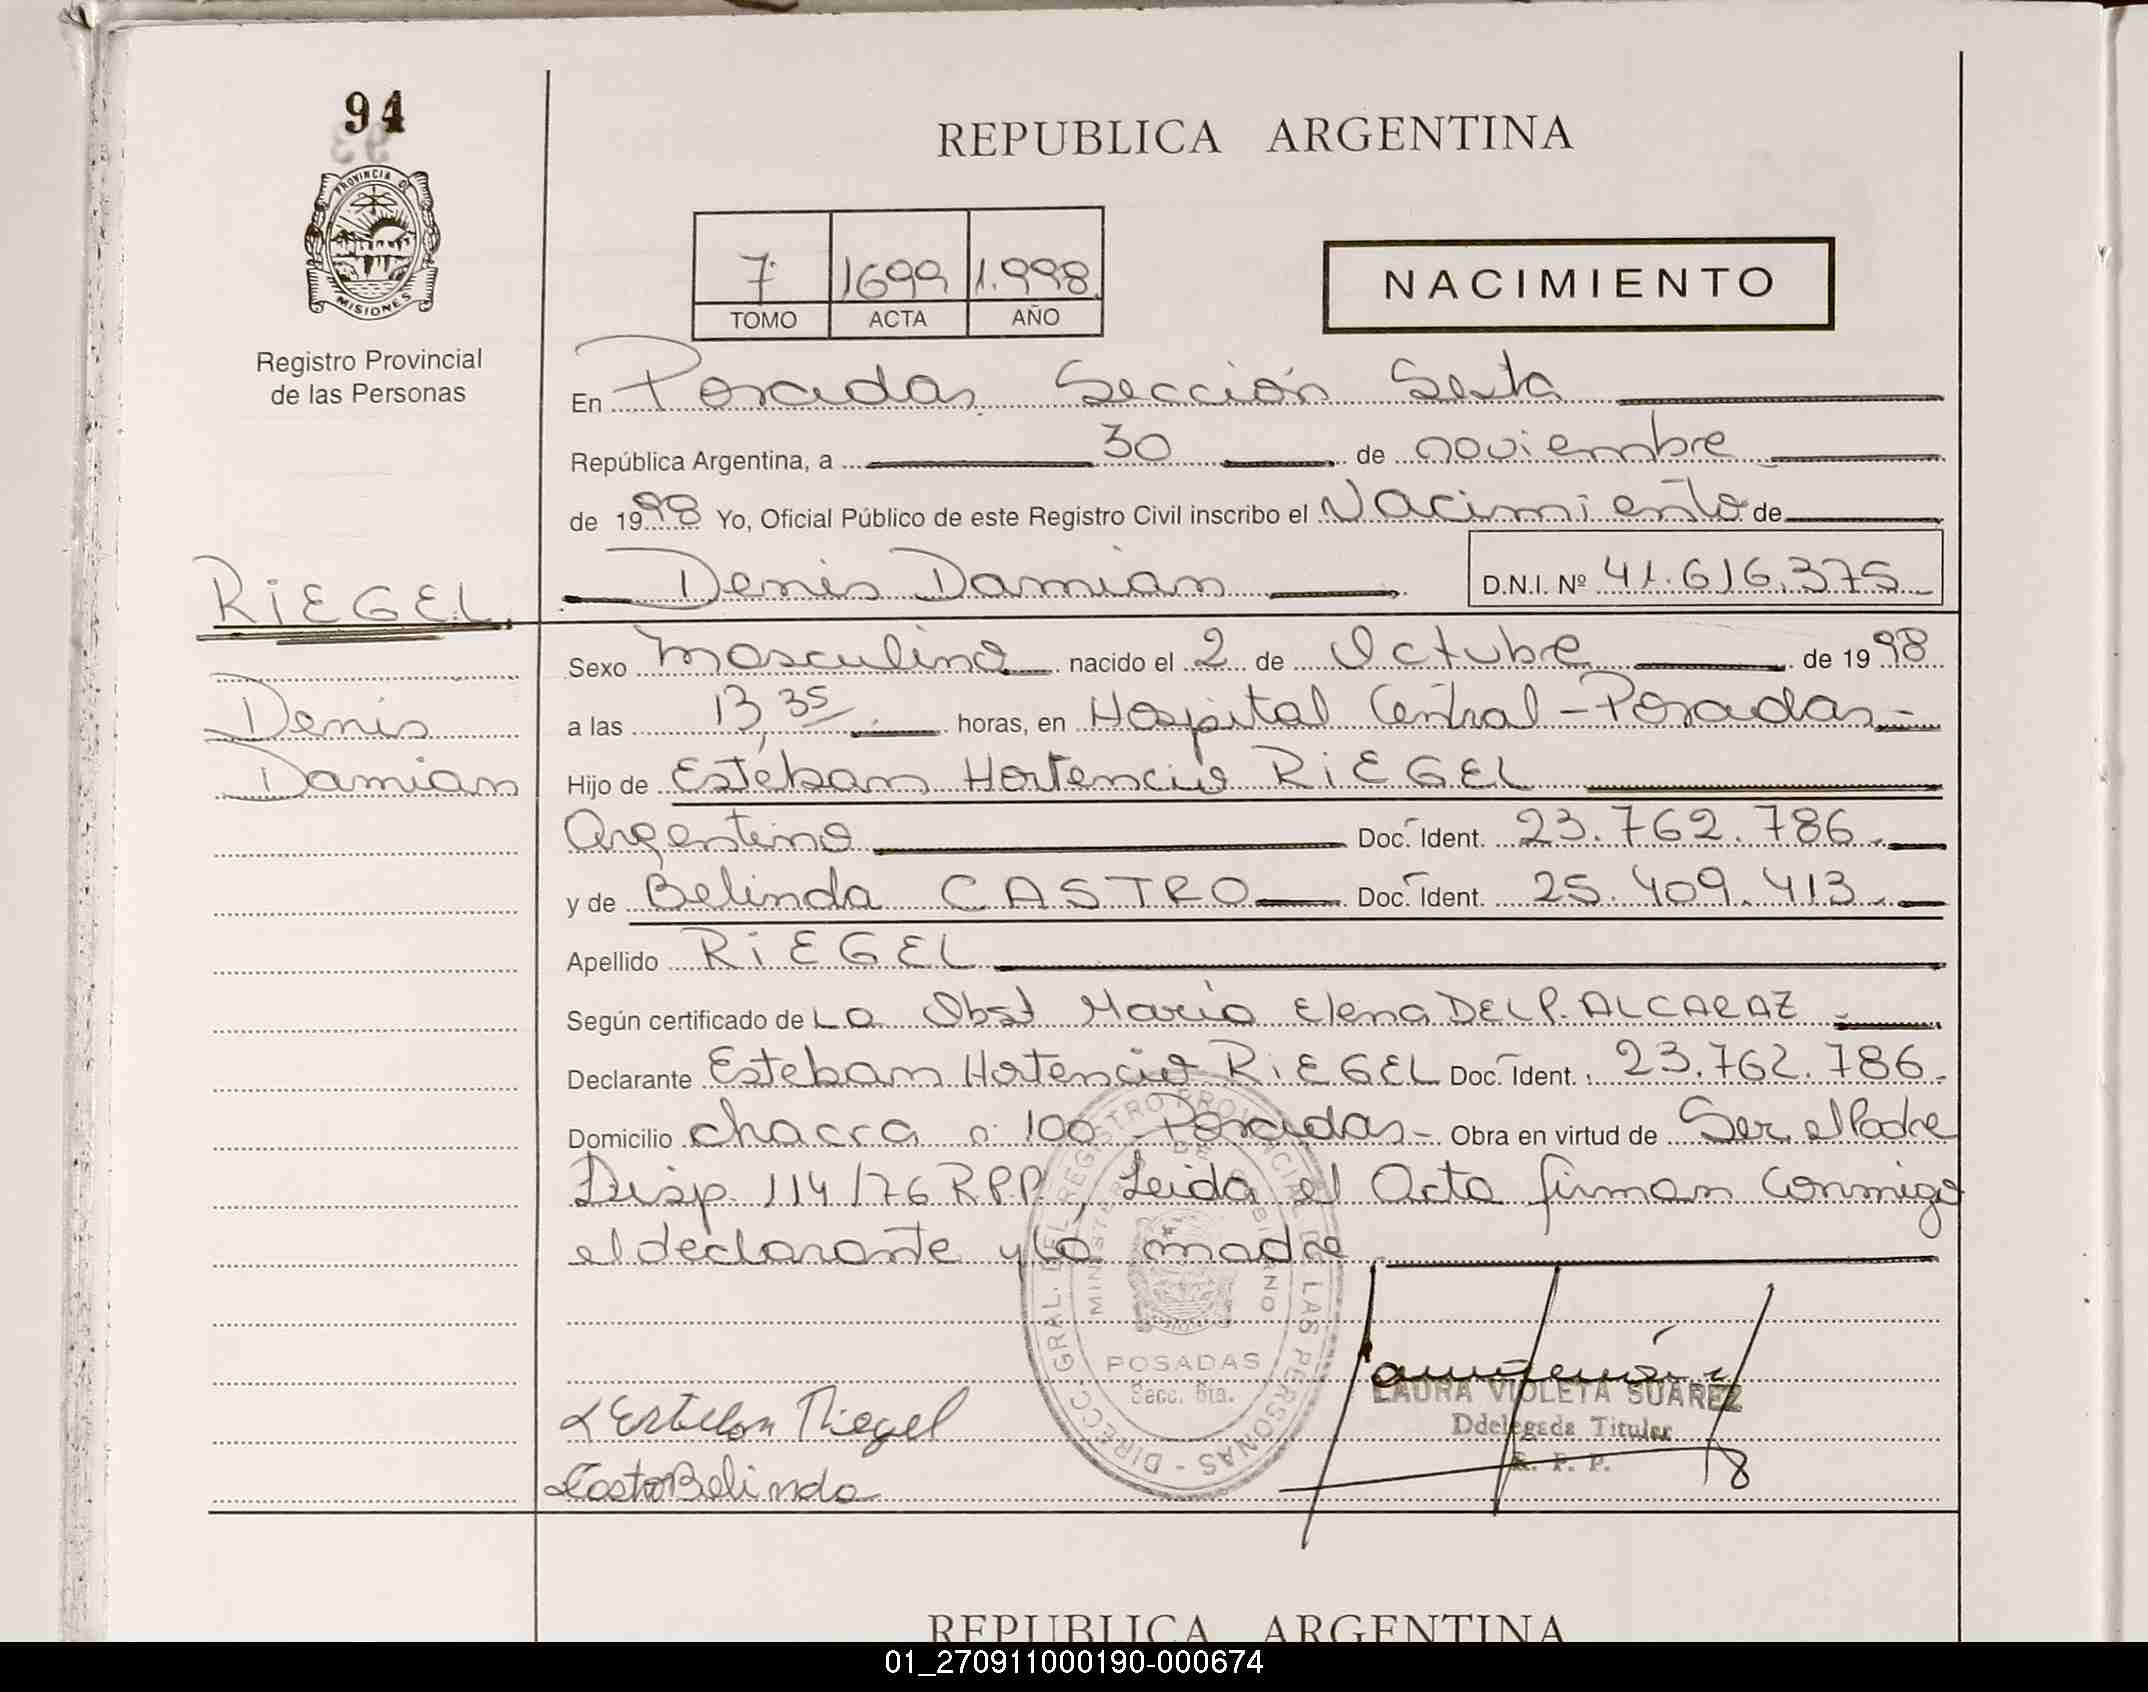 94
PROVINCIA DE
MISIONES
Registro Provincial
de las Personas
REPUBLICA ARGENTINA
7 1699 1.998
TOMO ACTA AÑO
NACIMIENTO
En Posadas Sección Sexta
República Argentina, a 30 de noviembre
de 1998 Yo, Oficial Público de este Registro Civil inscribo el Nacimiento de
Denis Damian D.N.I. Nº 41.616.375
RiEGEL
Denis
Damian
Sexo Masculino nacido el 2 de Octubre de 1998
a las 13,35 horas, en Hospital Central - Posadas -
Hijo de Estéban Hortencio RiEGEL
Argentino Doc. Ident. 23.762.786.
y de Belinda CASTRO Doc. Ident. 25.409.413.
Apellido RiEGEL
Según certificado de La Obst Maria Elena DEL P. ALCARAZ
Declarante Esteban Hortencio RiEGEL Doc. Ident. 23.762.786.
Domicilio chacra nº 100 Posadas - Obra en virtud de Ser el Padre
Disp. 114/76 R.P.P, Leida el Acta firman Conmigo
el declarante y la madre
DIRECC. GRAL. DEL REGISTRO PROVINCIAL DE LAS PERSONAS -
MINISTERIO DE GOBIERNO
POSADAS
Secc. 6ta.
LAURA VIOLETA SUAREZ
Ddelegada Titular
R. P. P.
Esteban Riegel
Castro Belinda
REPUBLICA ARGENTINA
01_270911000190-000674